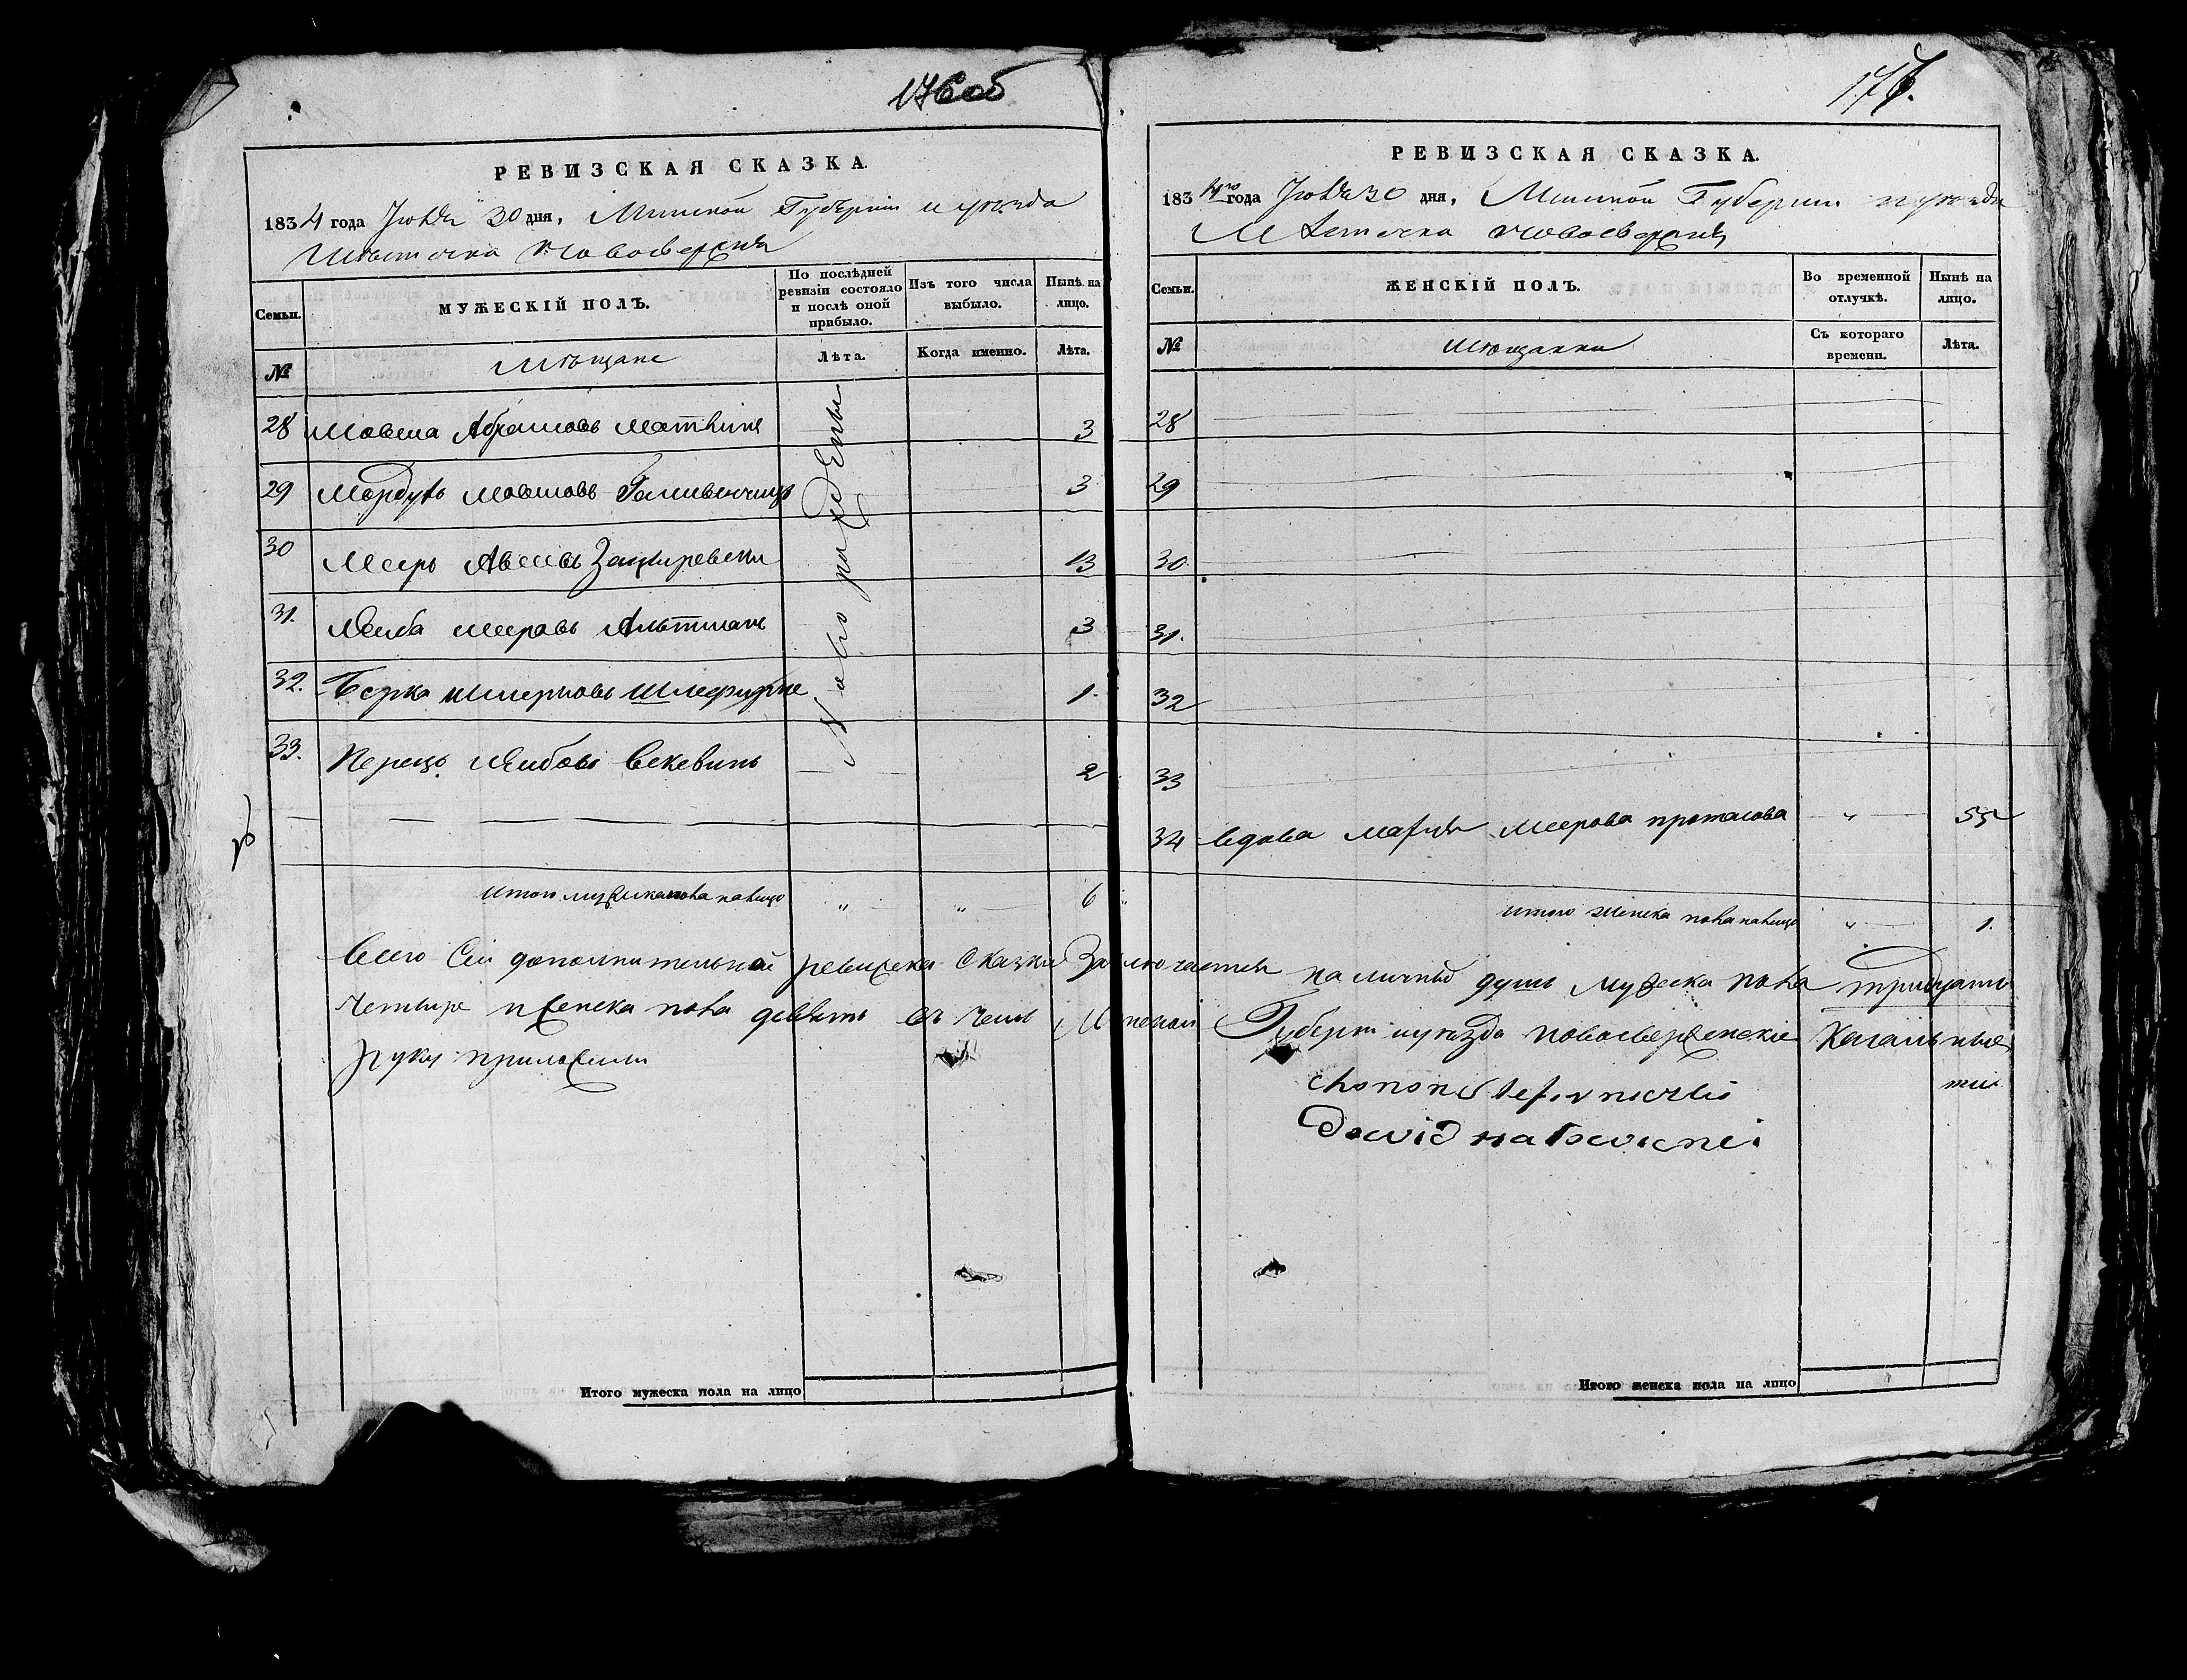 176 об
РЕВИЗСКАЯ СКАЗКА.
1834 года Июля 30 дня, Минской Губернии и уезда
Местечка Новосвержня
Семьи.
МУЖЕСКІЙ ПОЛЪ.
По послѣдней ревизіи состояло и послѣ оной прибыло.
Изъ того числа выбыло.
Нынѣ на лицо.
№
Мѣщане
Лѣта.
Когда именно.
Лѣта.
28 Мовша Абрамовъ 3
29 Мордухъ Мовшовъ 3
30 Мееръ 13
31. Лейба Мееровъ Альтманъ 3
32. Берка 1.
33. Перецъ Лейбовъ 2
Ново рождены
Итого мужеска пола на лицо „ „ 6
177.
РЕВИЗСКАЯ СКАЗКА.
1834го года Июля 30 дня, Минской Губернии и уезда
Местечка Новосвержня
Семьи.
ЖЕНСКІЙ ПОЛЪ.
Во временной отлучкѣ.
Нынѣ на лицо.
№
Мѣщанки
Съ котораго времени.
Лѣта.
28
29
30
31.
32
33
34 вдова Меерова протасова „ 55
итого женска пола на лицо „ 1.
Всего Сей дополнительной ревижской Сказки Заключается на личных душъ мужеска пола тридцать
четыре и женска пола девять въ чемъ Минской Губерни и уезда Новосверженские Кагальные
руку приложили
David
Итого мужеска пола на лицо
Итого женска пола на лицо